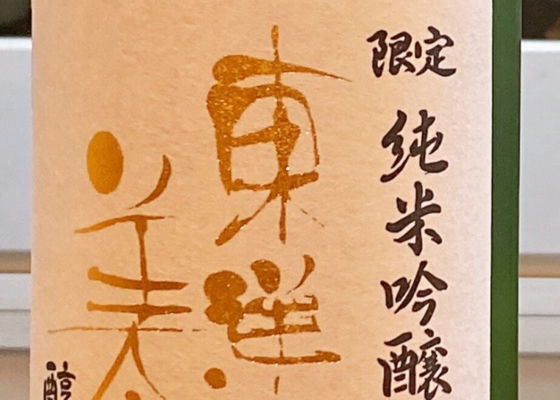 限定
純米吟醸
東洋
美
醇